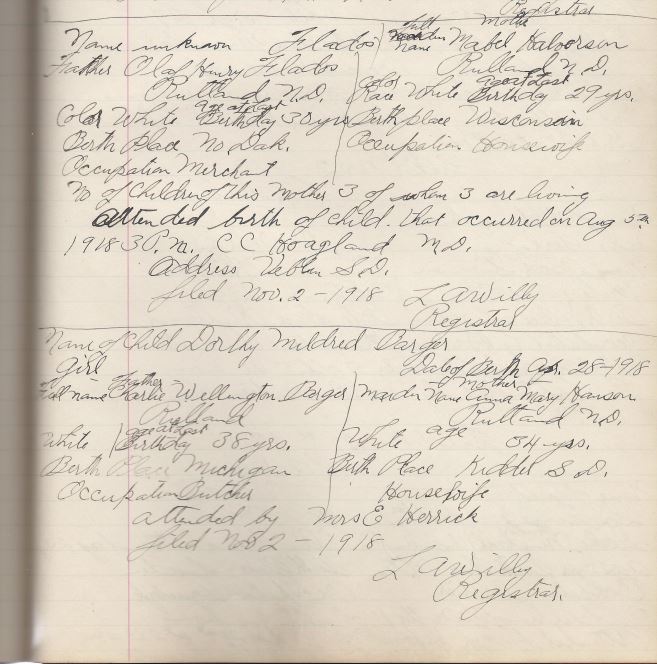 Registrar
Name unknown Flados
Full Maiden Name Mother Mabel Halvorsen
Father Olaf Henry Flados
Rutland N.D.
Rutland N.D.
color Race White age at last Birthday 29 yrs.
Color White age at last Birthday 30 yrs
Birthplace Wisconsin
Birth Place No Dak.
Occupation Housewife
Occupation Merchant
No of Children of this Mother 3 of whom 3 are living
attended birth of child. that occurred on Aug 5th
1918 3 P.M. C C Hoagland M.D.
address Veblen S.D.
filed Nov. 2 - 1918
L A Willy
Registrar
Name of Child Dorthy Mildred Barger
Girl
Date of Birth Apr. 28-1918
Full name Father Charlie Wellington Barger
Maiden Name Mother Anna Mary Hanson
Rutland
Rutland N.D.
White age at last Birthday 38 yrs.
White age 34 yrs.
Birth Place Michigan
Birth Place Kidder S.D.
Occupation Butcher
Housewife
attended by Mrs E Herrick
filed Nov 2 - 1918
L A Willy
Registrar.